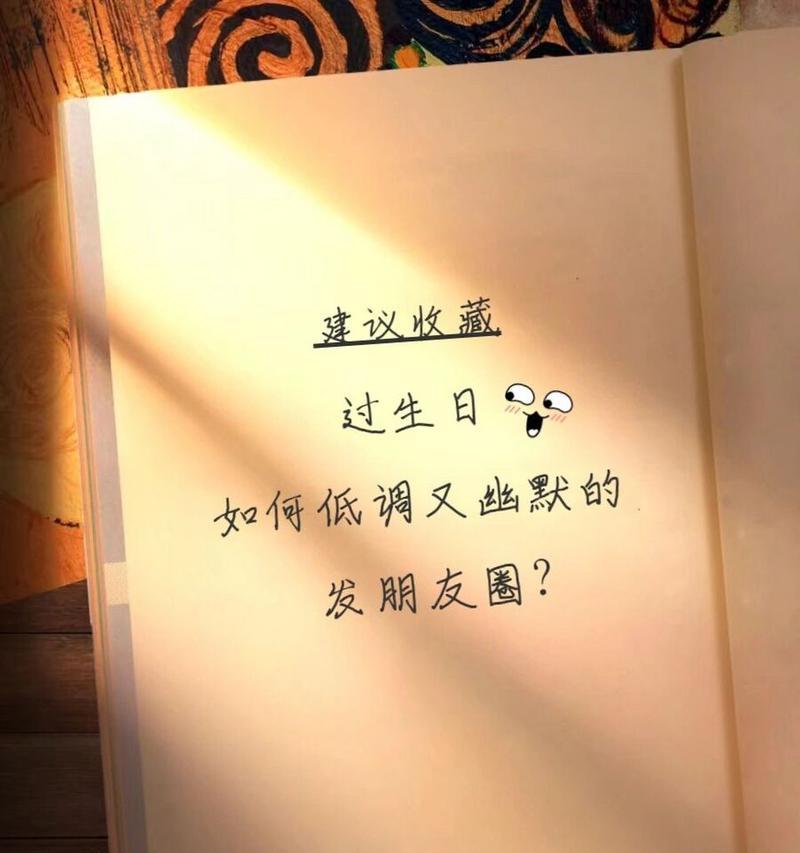 建议收藏
过生日
如何低调又幽默的
发朋友圈?